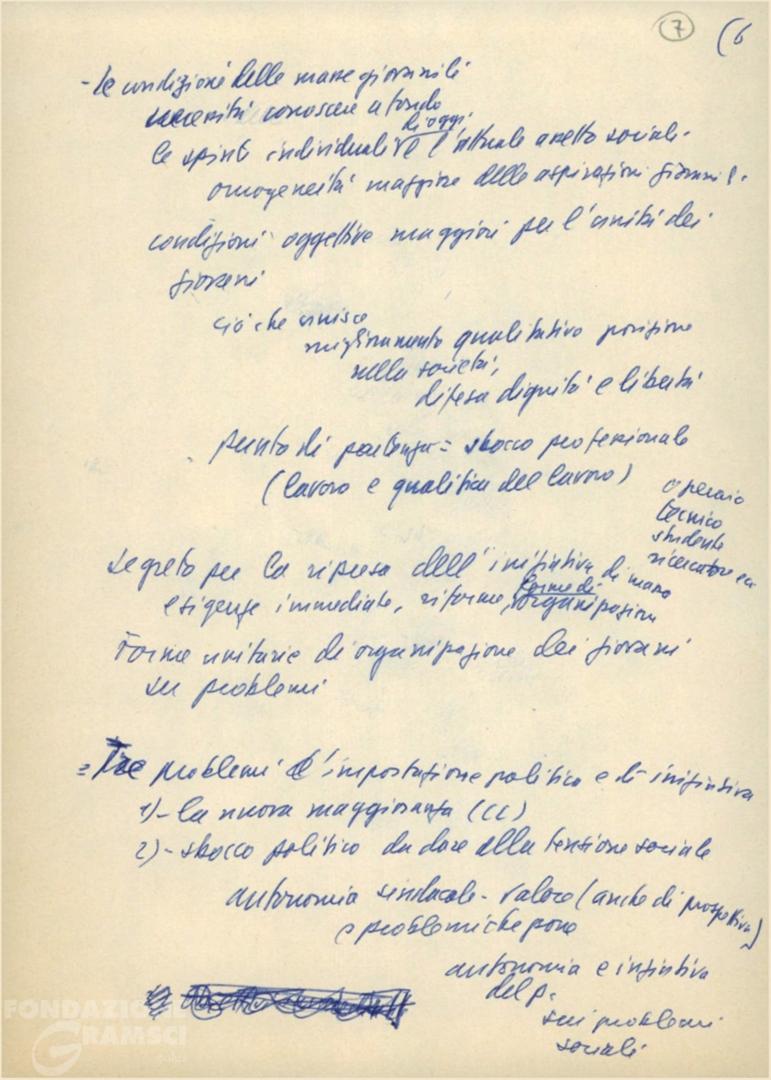 7 (6
- le condizioni delle masse giovanili
necessità conoscere a fondo
di oggi.
le spinte individuali e l'attuale assetto sociale.
omogeneità maggiore delle aspirazioni giovanil.
condizioni oggettive maggiori per l'unità dei
giovani
ciò che unisce
miglioramento qualitativo posizione
nella società,
difesa dignità e libertà
punto di partenza = sbocco professionale
(lavoro e qualifica del lavoro)
operaio
tecnico
studente
ricercatore ecc
segreto per la ripresa dell'iniziativa di massa
esigenze immediate, riforme, forme di
organizzazione
Forme unitarie di organizzazione dei giovani
su problemi
= problemi d'impostazione politica e di iniziativa
1) - la nuova maggioranza (CC)
2) - sbocco politico da dare alla tensione sociale
autonomia sindacale - valore (anche di prospettiva)
e problemi che pone
autonomia e iniziativa
del p.
sui problemi
sociali
FONDAZIONE
GRAMSCI